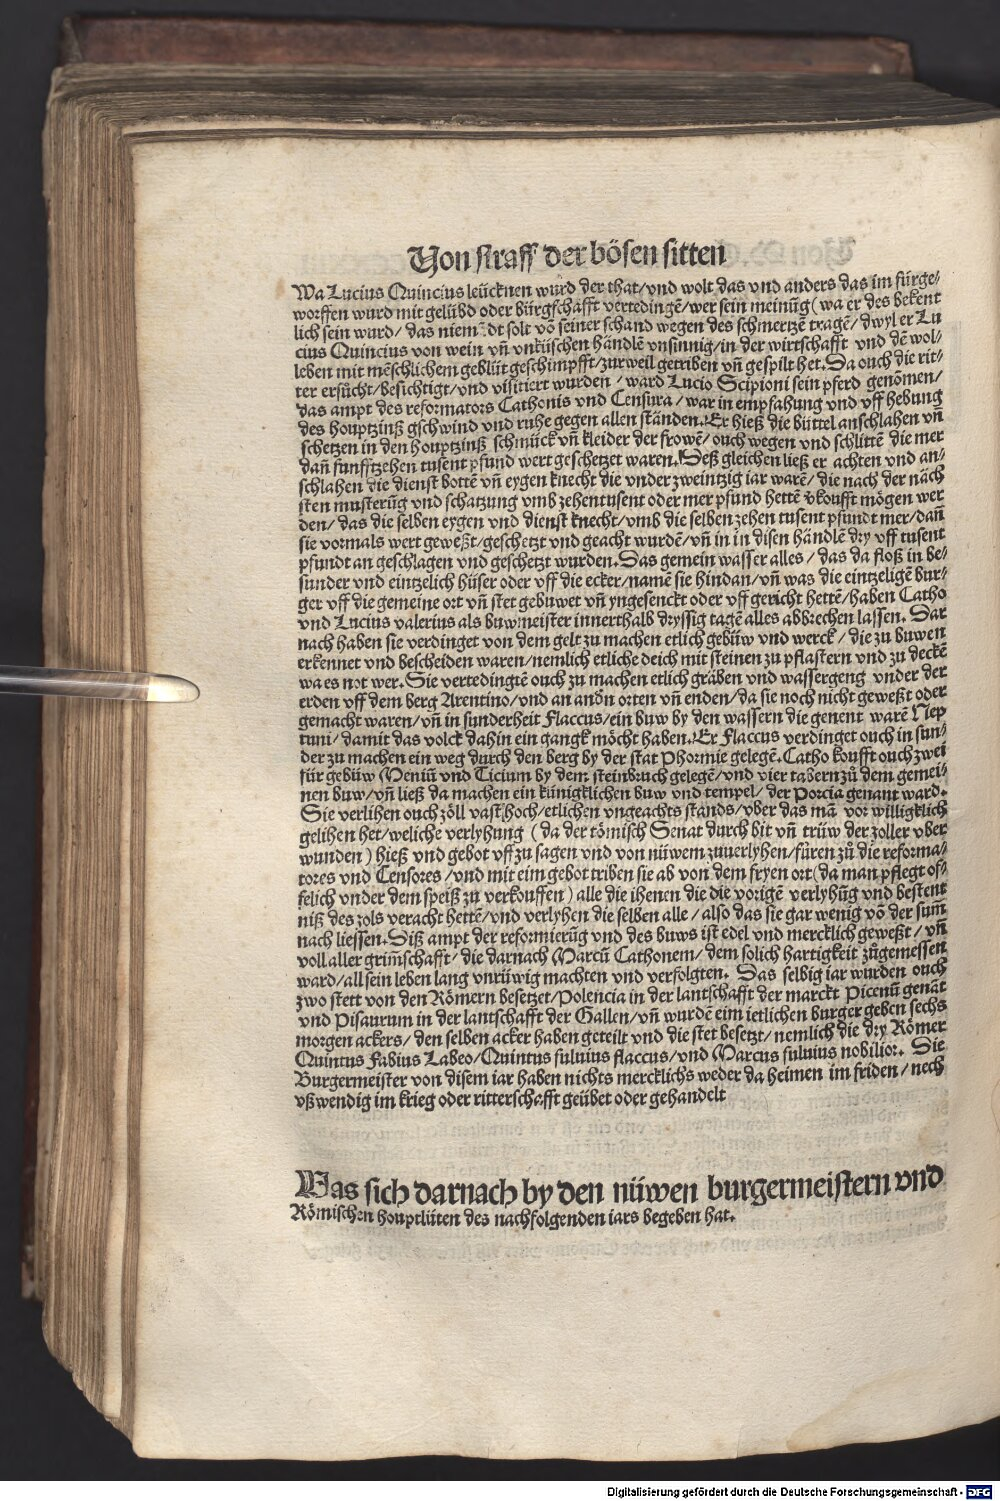 Von straff der bösen sitten
Wa Lucius Quincius leücknen wurd der that/vnd wolt das vnd anders das im fürge-
worffen wurd mit gelübd oder bürgschafft vertedingē/wer sein meinūg (wa er des bekent
lich sein wurd/das niemādt solt vō seiner schand wegen des schmertzē tragē/dwyl er Lu
cius Quincius von wein vn̄ vnküschen händlē vnsinnig/in der wirtschafft vnd dē wol-
leben mit mēschlichem geblüt geschimpfft/zur weil getriben vn̄ gespilt het. Da ouch die rit-
ter ersücht/besichtigt/vnd visitiert wurden/ward Lucio Scipioni sein pferd genōmen/
das ampt des reformators Cathonis vnd Censura/war in empfahung vnd vff hebung
des houptzinß gschwind vnd ruhe gegen allen ständen. Er hieß die büttel anschlahen vn̄
schetzen in den houptzinß schmück vn̄ kleider der frowē/ouch wegen vnd schlittē die mer
dan̄ funfftzehen tusent pfund wert geschetzet waren. Deß gleichen ließ er achten vnd an-
schlahen die dienst bottē vn̄ eygen knecht die vnder zweintzig iar warē/die nach der näch
sten musterūg vnd schatzung vmb zehentusent oder mer pfund hettē vkoufft mögen wer
den/das die selben eygen vnd dienst knecht/vmb die selben zehen tusent pfundt mer/dan̄
sie vormals wert geweßt/geschetzt vnd geacht wurdē/vn̄ in in disen händlē dry vff tusent
pfundt an geschlagen vnd geschetzt wurden. Das gemein wasser alles/das da floß in be-
sunder vnd eintzelich hüser oder vff die ecker/namē sie hindan/vn̄ was die eintzeligē bur-
ger vff die gemeine ort vn̄ stet gebuwet vn̄ yngesenckt oder vff gericht hettē/haben Catho
vnd Lucius valerius als buwmeister innerthalb dryssig tagē alles abbrechen lassen. Dar
nach haben sie verdinget von dem gelt zu machen etlich gebüw vnd werck/die zu buwen
erkennet vnd bescheiden waren/nemlich etliche deich mit steinen zu pflastern vnd zu deckē
wa es not wer. Sie vertedingtē ouch zu machen etlich gräben vnd wassergeng vnder der
erden vff dem berg Arentino/vnd an andn̄ orten vn̄ enden/da sie noch nicht geweßt oder
gemacht waren/vn̄ in sunderheit Flaccus/ein buw by den wassern die genent warē Nep
tuni/damit das volck dahin ein gangk möcht haben. Er Flaccus verdinget ouch in sun-
der zu machen ein weg durch den berg by der stat Phormie gelegē. Catho koufft ouch zwei
für gebüw Meniū vnd Ticium by dem steinbruch gelegē/vnd vier tabern zů dem gemei-
nen buw/vn̄ ließ da machen ein künigklichen buw vnd tempel/der Porcia genant ward.
Sie verlihen ouch zöll vast hoch/etlichen vngeachts stands/vber das mā vor willigklich
gelihen het/weliche verlyhung (da der römisch Senat durch bit vn̄ trüw der zoller vber
wunden) hieß vnd gebot vff zu sagen vnd von nüwem zuuerlyhen/füren zů die reforma-
tores vnd Censores/vnd mit eim gebot triben sie ab von dem fryen ort (da man pflegt of-
felich vnder dem speiß zu verkouffen) alle die ihenen die die vorigē verlyhūg vnd bestent
niß des zols veracht hettē/vnd verlyhen die selben alle/also das sie gar wenig vō der sum̄
nach liessen. Diß ampt der reformierūg vnd des buws ist edel vnd mercklich geweßt/vn̄
voll aller grimschafft/die darnach Marcū Cathonem/dem solich hartigkeit zůgemessen
ward/all sein leben lang vnrüwig machten vnd verfolgten. Das selbig iar wurden ouch
zwo stett von den Römern besetzet/Polencia in der lantschafft der marckt Picenū genāt
vnd Pisaurum in der lantschafft der Gallen/vn̄ wurdē eim ietlichen burger geben sechs
morgen ackers/den selben acker haben geteilt vnd die stet besetzt/nemlich die dry Römer
Quintus Fabius Labeo/Quintus fuluius flaccus/vnd Marcus fuluius nobilior. Die
Burgermeister von disem iar haben nichts mercklichs weder da heimen im friden/nech
vßwendig im krieg oder ritterschafft geübet oder gehandelt
Was sich darnach by den nüwen burgermeistern vnd
Römischen houptlüten des nachfolgenden iars begeben hat.
Digitalisierung gefördert durch die Deutsche Forschungsgemeinschaft - DFG